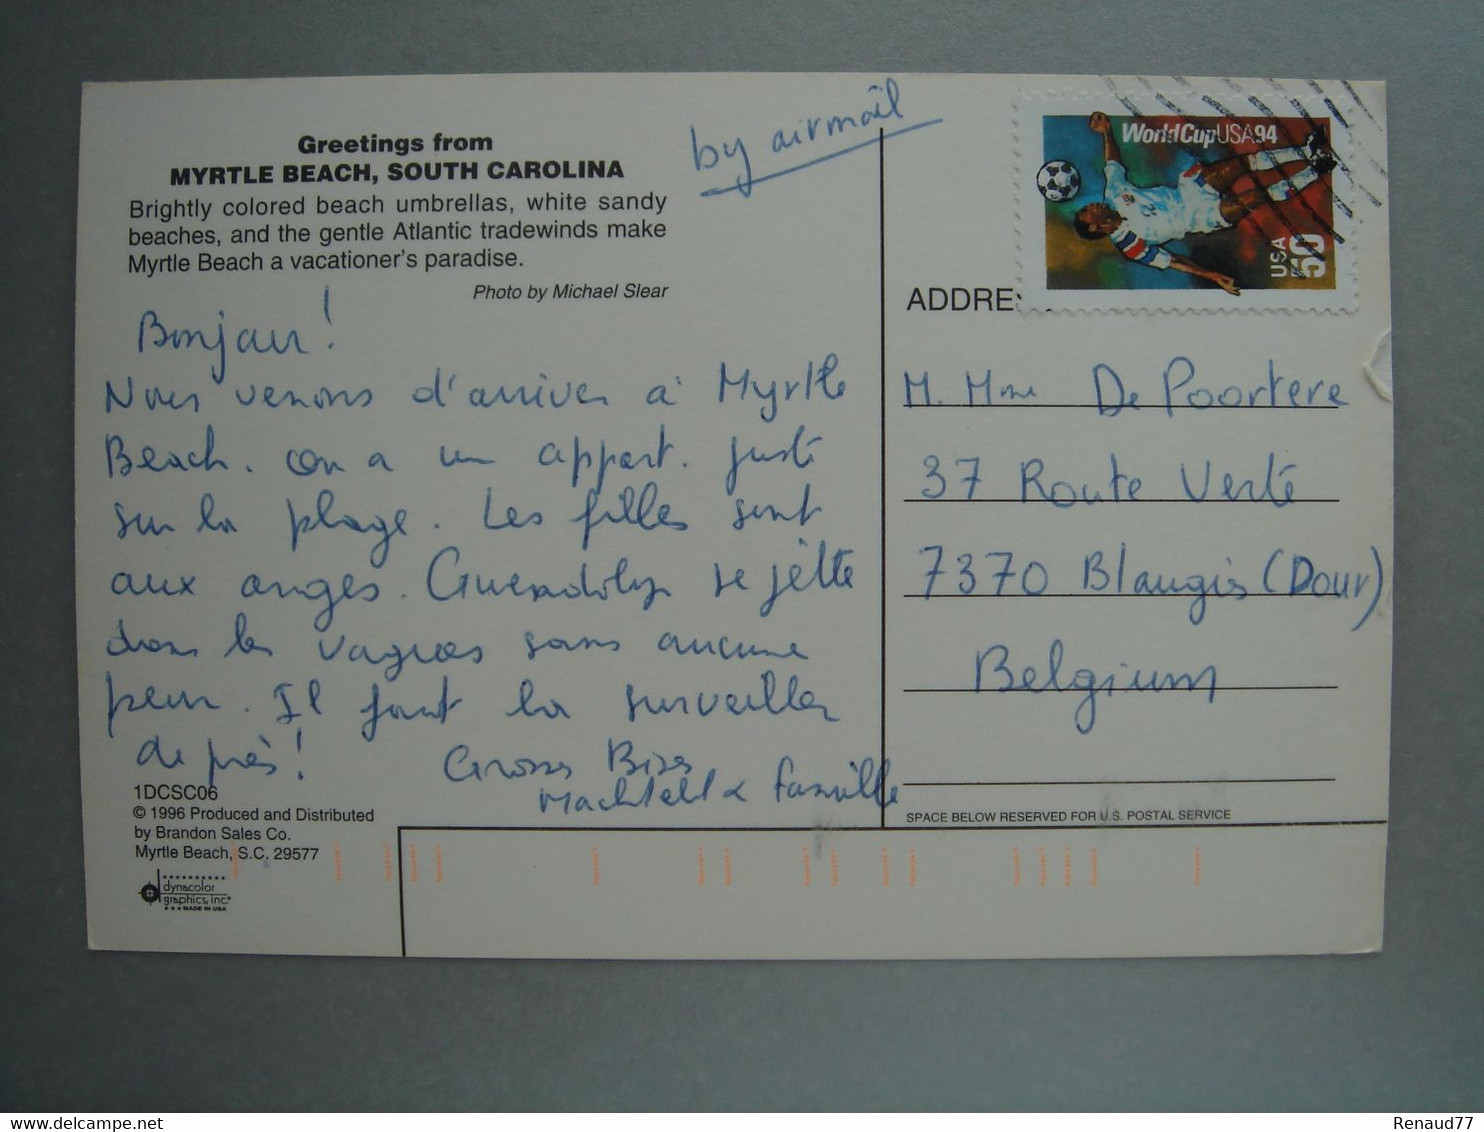 Greetings from
MYRTLE BEACH, SOUTH CAROLINA
Brightly colored beach umbrellas, white sandy
beaches, and the gentle Atlantic tradewinds make
Myrtle Beach a vacationer's paradise.
Photo by Michael Slear
by airmail
Bonjour!
Nous venons d'arriver à Myrtle
Beach. On a un appart. juste
sur la plage. Les filles sont
aux anges. Gwendolyn se jètte
dans les vagues sans aucune
peur. Il faut la surveiller
de près!
Grosses Bises
Machteld & famille
1DCSC06
© 1996 Produced and Distributed
by Brandon Sales Co.
Myrtle Beach, S.C. 29577
dynacolor
graphics, inc.
MADE IN USA
WorldCupUSA94
USA
50
ADDRE
M. Mme De Poortere
37 Route Verte
7370 Blaugis (Dour)
Belgium
SPACE BELOW RESERVED FOR U.S. POSTAL SERVICE
delcampe.net
Renaud77